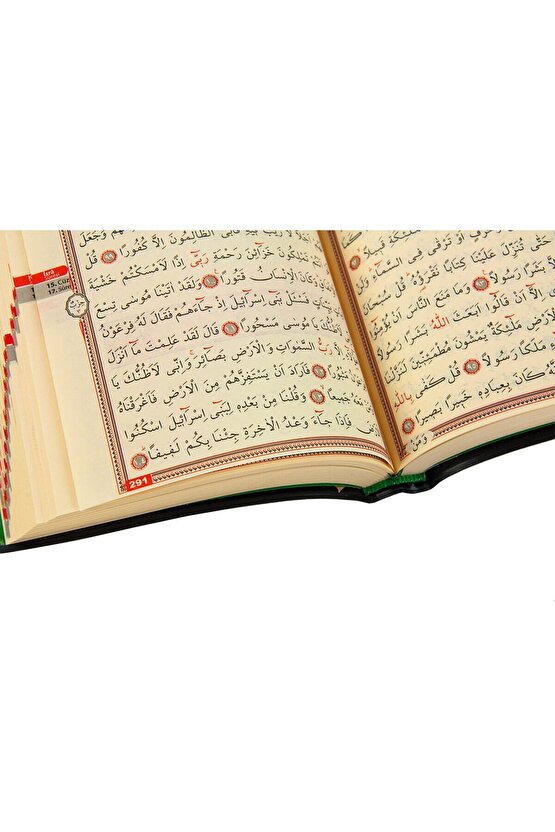 قَبِيلًا
اَوْ تَرْقٰى فِى السَّمَٓاءِ
حَتّٰى تُنَزِّلَ عَلَيْنَا كِتَابًا نَقْرَؤُهُ قُلْ
بَشَرًا رَسُولًا ﴿٩٣﴾ وَمَا مَنَعَ النَّاسَ اَنْ
اِلَّٓا اَنْ قَالُٓوا اَبَعَثَ اللّٰهُ بَشَرًا رَسُولًا
مَلٰٓئِكَةٌ يَمْشُونَ مُطْمَئِنِّينَ
مَلَكًا رَسُولًا ﴿٩٥﴾ قُلْ كَفٰى بِاللّٰهِ
كَانَ بِعِبَادِهِ خَبِيرًا بَصِيرًا ﴿٩٦﴾
وَمَنْ
فَاَبَى الظَّالِمُونَ اِلَّا كُفُورًا ﴿٩٩﴾ قُلْ
تَمْلِكُونَ خَزَٓائِنَ رَحْمَةِ رَبِّٓى اِذًا لَاَمْسَكْتُمْ خَشْيَةَ
وَكَانَ الْاِنْسَانُ قَتُورًا ﴿١٠٠﴾ وَلَقَدْ اٰتَيْنَا مُوسٰى تِسْعَ
فَسْـَٔلْ بَنِٓى اِسْرَٓائِلَ اِذْ جَٓاءَهُمْ فَقَالَ لَهُ فِرْعَوْنُ
يَا مُوسٰى مَسْحُورًا ﴿١٠١﴾ قَالَ لَقَدْ عَلِمْتَ مَٓا اَنْزَلَ
اِلَّا رَبُّ السَّمٰوَاتِ وَالْاَرْضِ بَصَٓائِرَ وَاِنِّى لَاَظُنُّكَ يَا
مَثْبُورًا ﴿١٠٢﴾ فَاَرَادَ اَنْ يَسْتَفِزَّهُمْ مِنَ الْاَرْضِ فَاَغْرَقْنَاهُ
جَمِيعًا ﴿١٠٣﴾ وَقُلْنَا مِنْ بَعْدِهِ لِبَنِٓى اِسْرَٓائِلَ اسْكُنُوا
فَاِذَا جَٓاءَ وَعْدُ الْاٰخِرَةِ جِئْنَا بِكُمْ لَفِيفًا ﴿١٠٤﴾
291
İsrâ
15. Cüz
17. Sûre